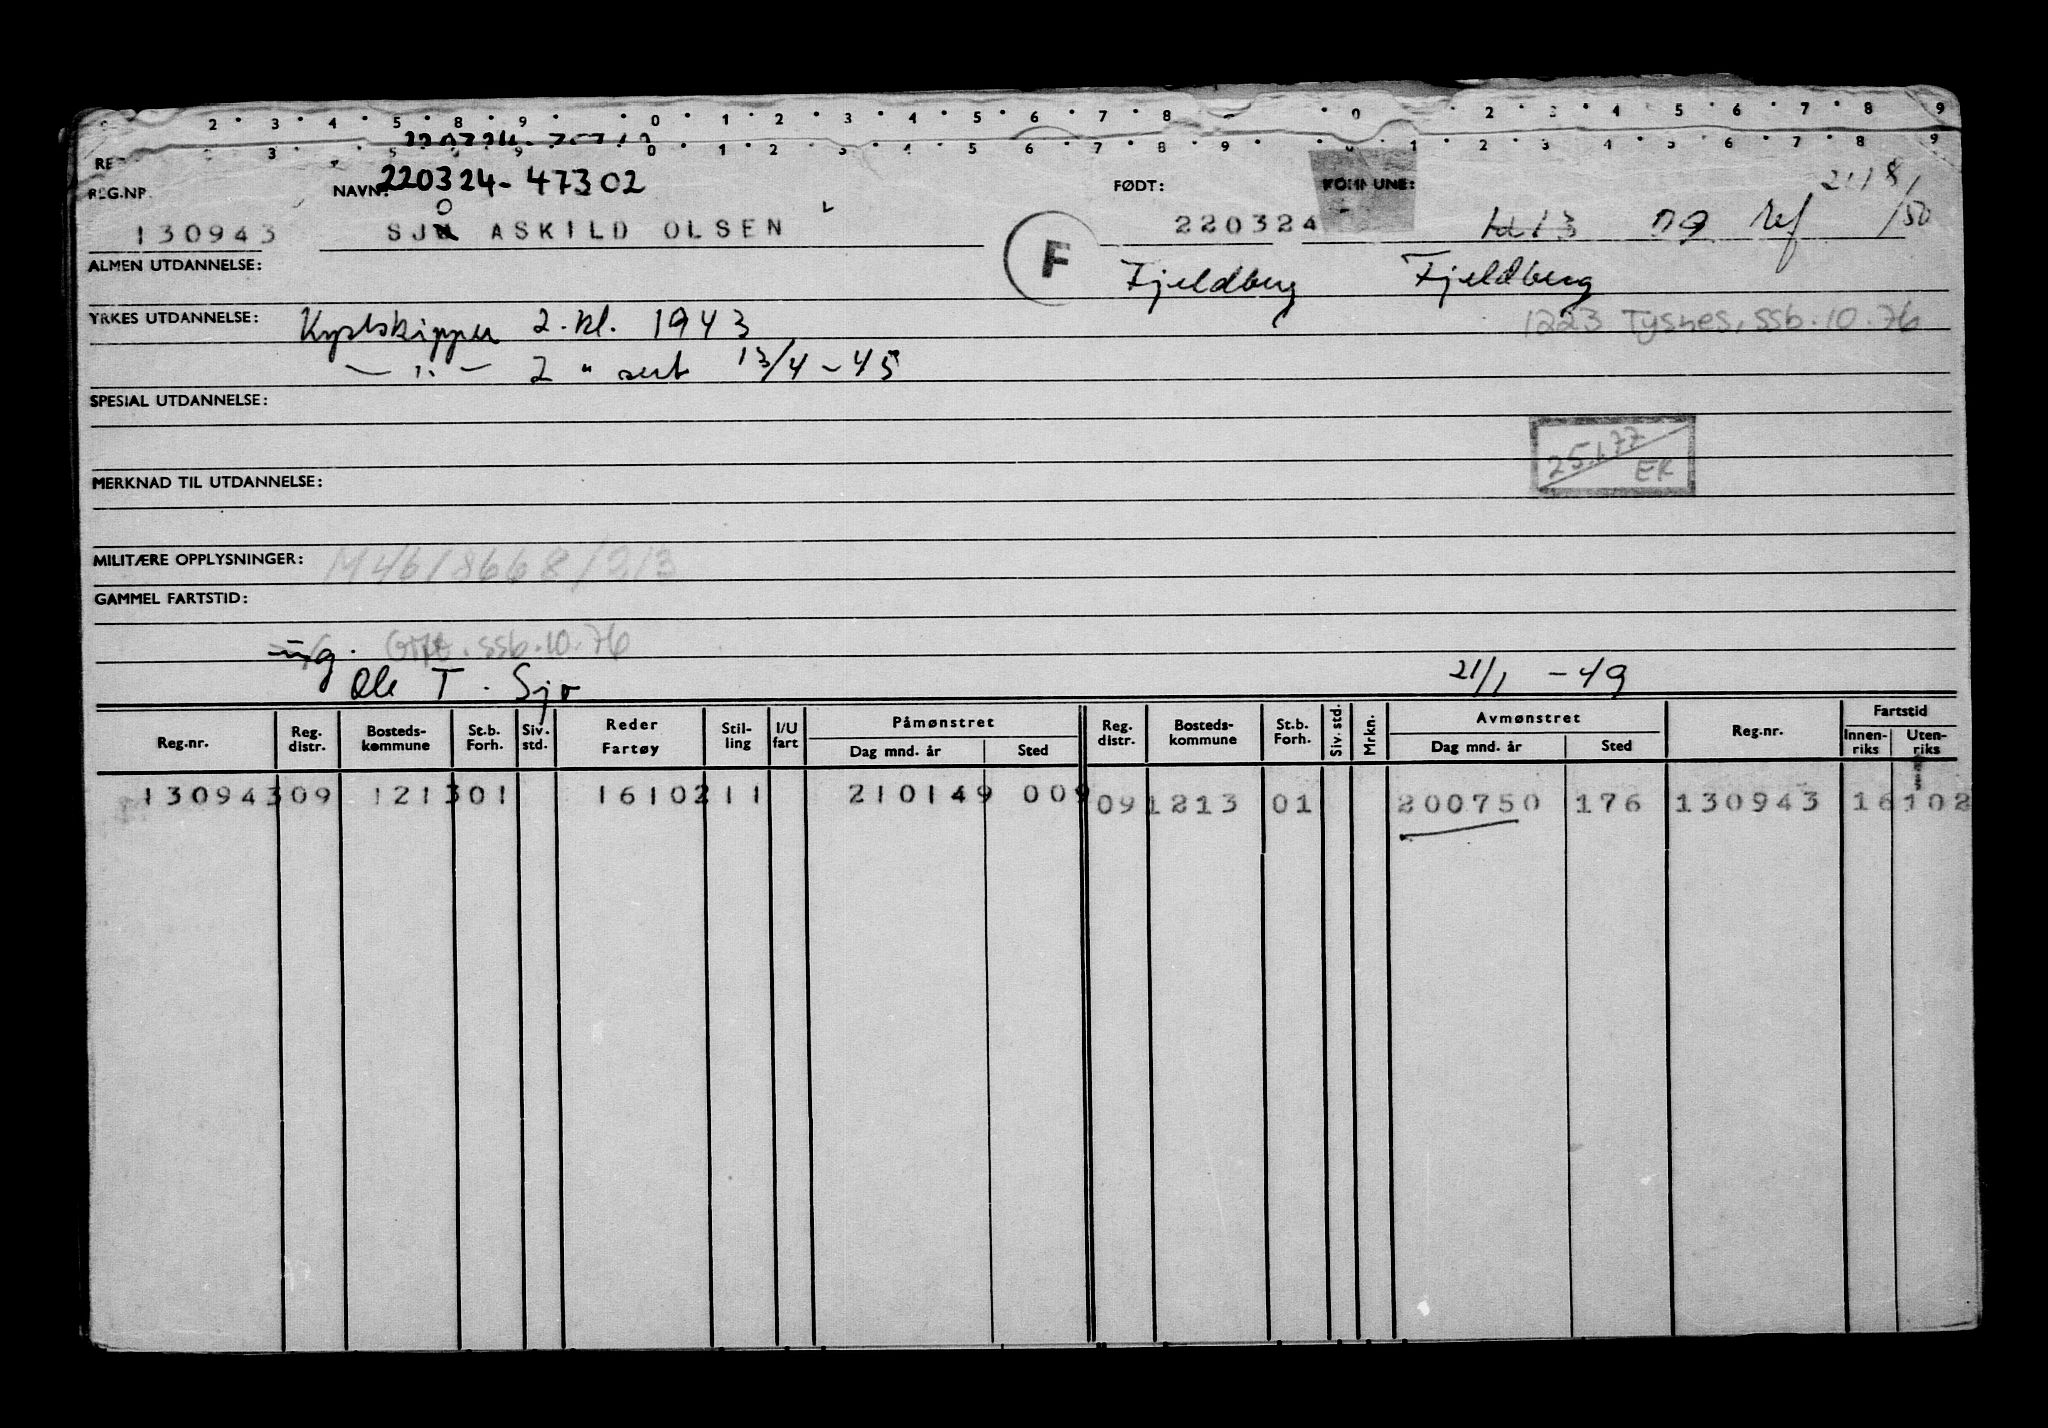 2 3 4 5 8 9 0 1 2 3 4 5 6 7 8 0 2 3 4 5 6 7 8 9
3 5 8 9 0 1 2 3 4 5 6 7 8 9 0 1 2 3 4 5 6 7 8 9
REG.NR. NAVN: 220324-47302 FØDT: KOMMUNE:
O
130943 SJU ASKILD OLSEN F 220324 13 09 Ref /50
ALMEN UTDANNELSE: Fjeldberg Fjeldberg
YRKES UTDANNELSE: Kystskipper 2. kl. 1943 1223 Tysnes, ssb.10.76
— " — 2 " sert 13/4 - 45
SPESIAL UTDANNELSE:
25.1.77 EK
MERKNAD TIL UTDANNELSE:
MILITÆRE OPPLYSNINGER: M46/8668/213
GAMMEL FARTSTID:
ug. Gift. ssb.10.76
Ole T. Sjo 21/1 - 49
Reg.nr. Reg. distr. Bosteds-kommune St.b. Forh. Siv. std. Reder Fartøy Stil-ling I/U fart Påmønstret Dag mnd. år Sted Reg. distr. Bosteds-kommune St.b. Forh. Siv. std. Mrkn. Avmønstret Dag mnd. år Sted Reg.nr. Fartstid Innen-riks Uten-riks
130943 09 1213 01 16102 11 210149 009 09 1213 01 200750 176 130943 16102